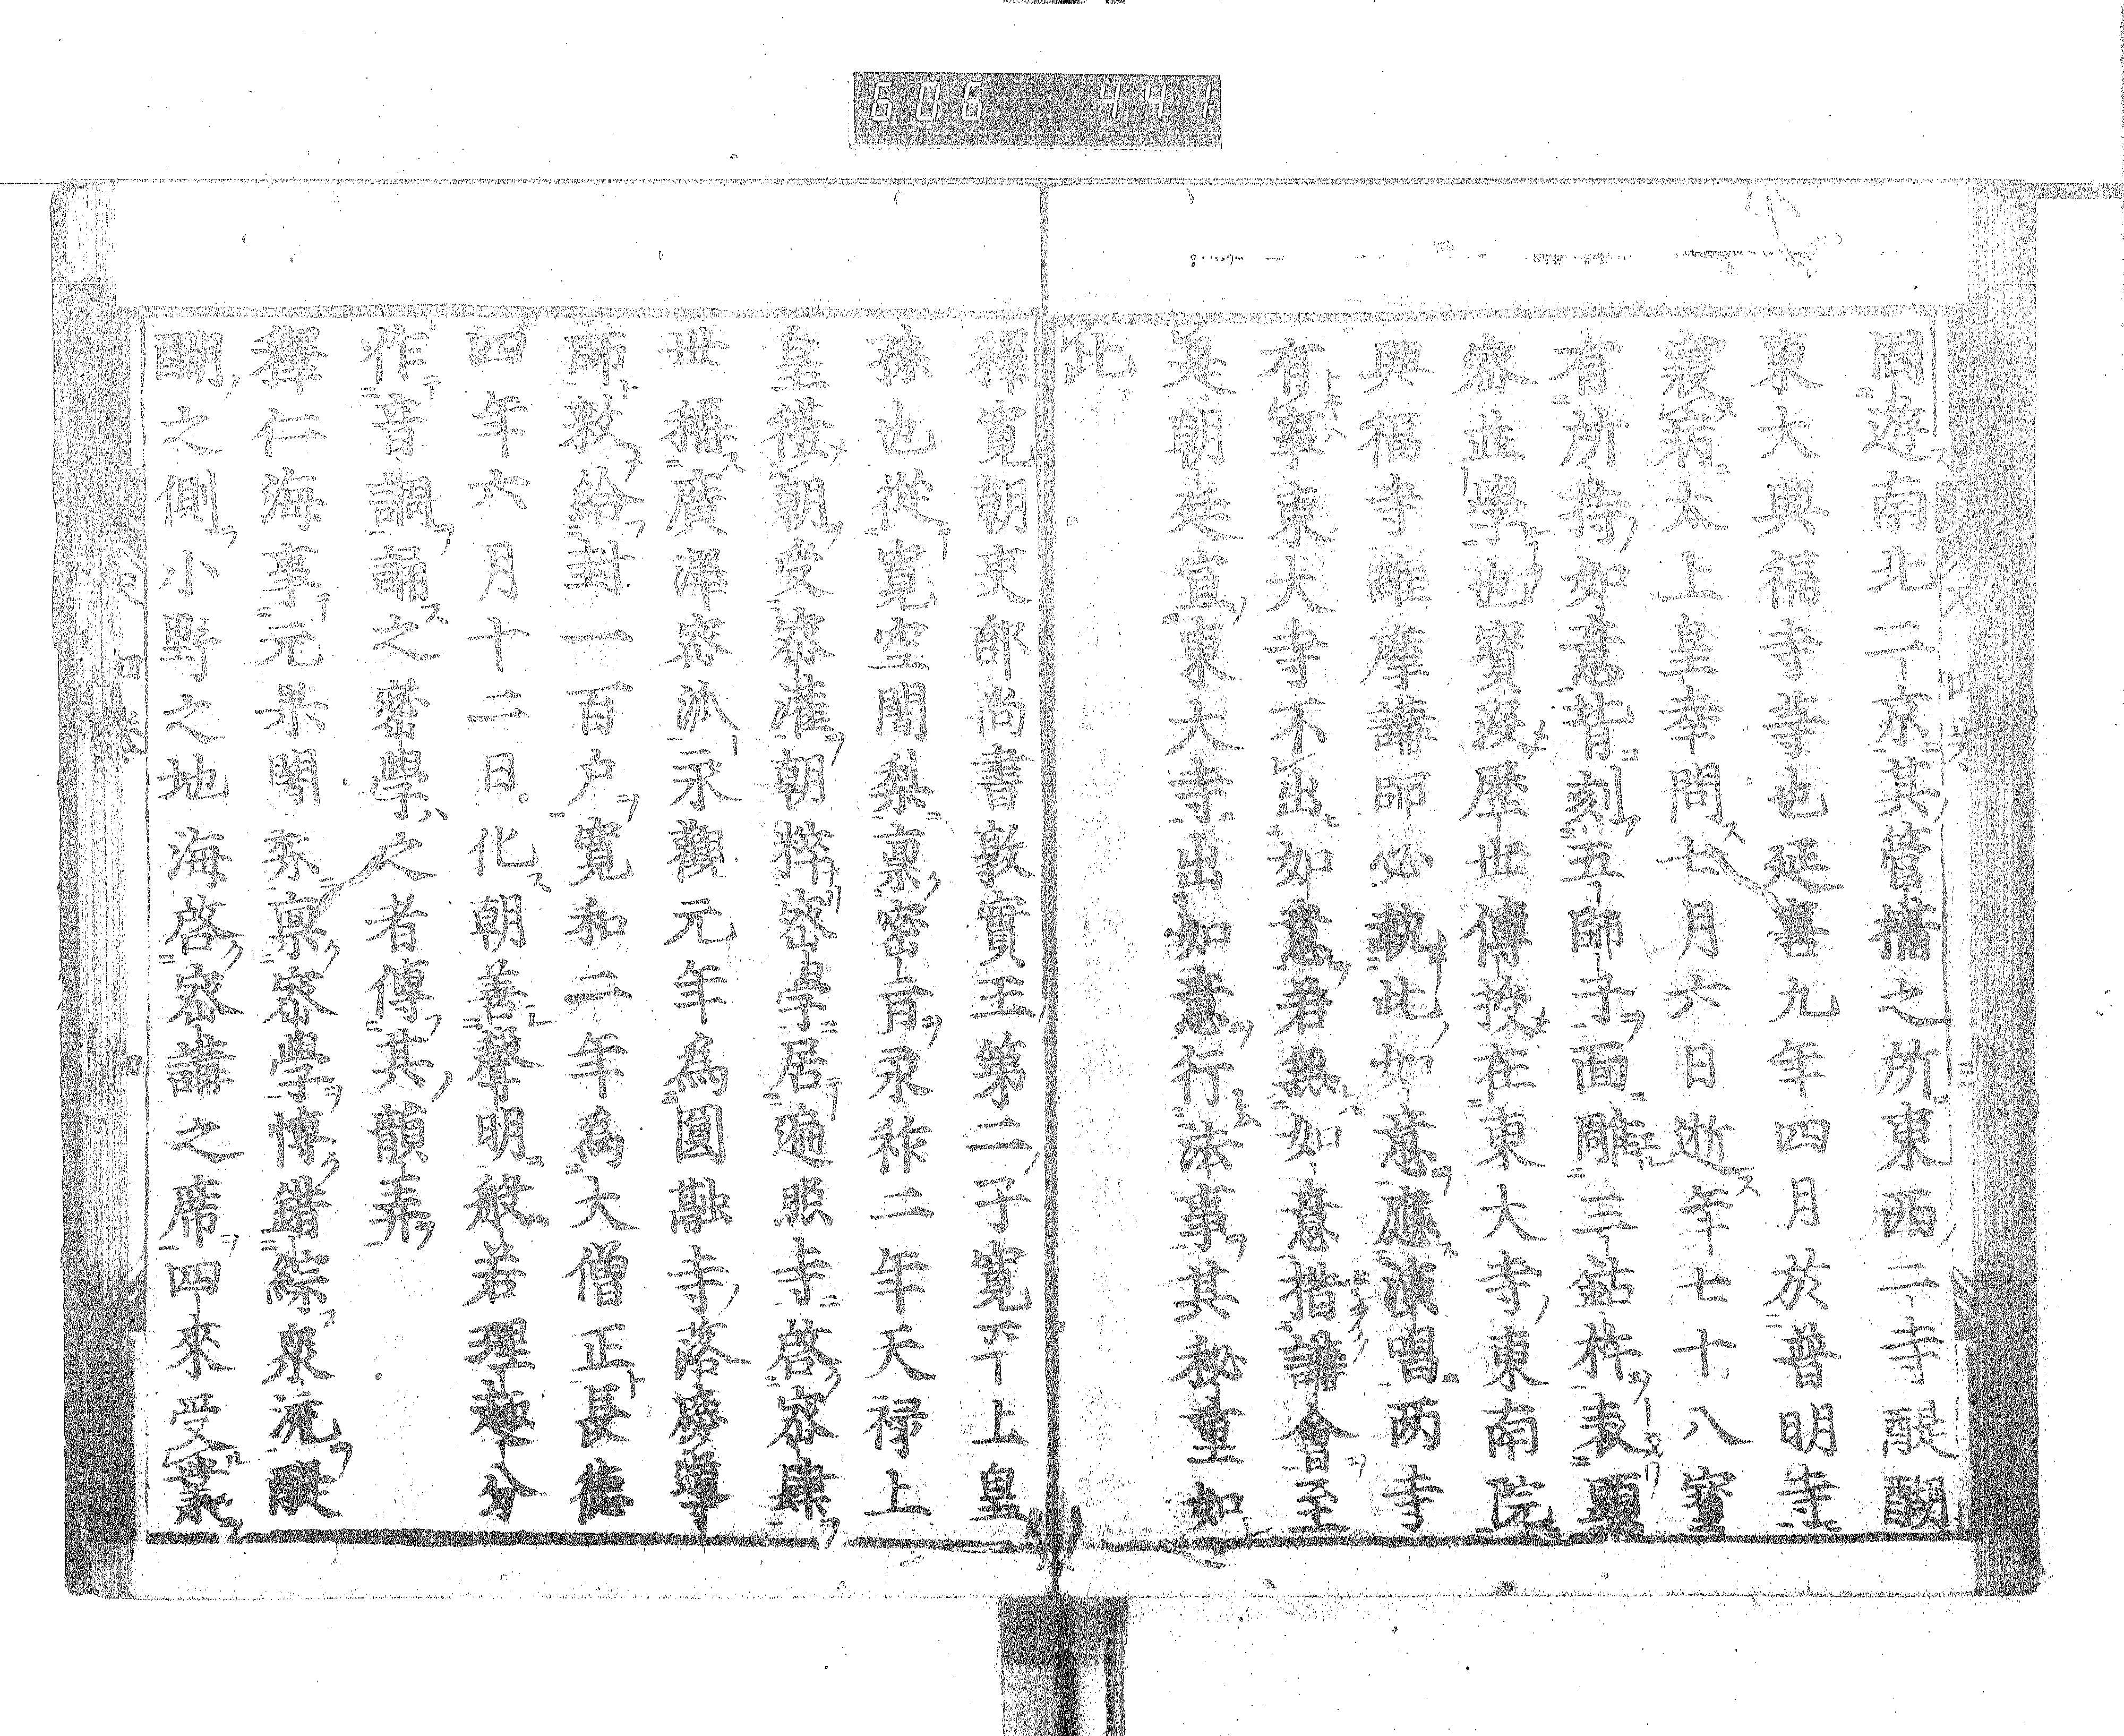 606 441
周遊南北二京其營搆之所東西二寺醍醐
東大興福寺等也延喜九年四月於普明寺
寢病太上皇幸問七月六日逝年七十八寶
有所持如意背刻五師子面雕三鈷杵表顯
密並學也寶沒歷世傳授在東大寺東南院
興福寺維摩講師必執此如意應演習兩寺
有寧東大寺不出如意若無如意揩講會至
是朝廷宣東大寺出如意行法事其秘重如
此
釋寛朝吏部尚書敦實王第二子寛平上皇
孫也從寛空闍梨稟密肓永祚二年天祿上
皇禮朝受密灌朝粹密學居遍照寺啓密肆
世播廣澤密派永觀元年為圓融寺落慶導
師敕給封一百户寛和二年為大僧正長德
四年六月十二日化朝善聲明般若理趣分
作音調誦之密學之者傳其韻弄
釋仁海事元杲闍梨稟密學博錯綜泉流醍
醐之側小野之地海啓密講之席四來受業